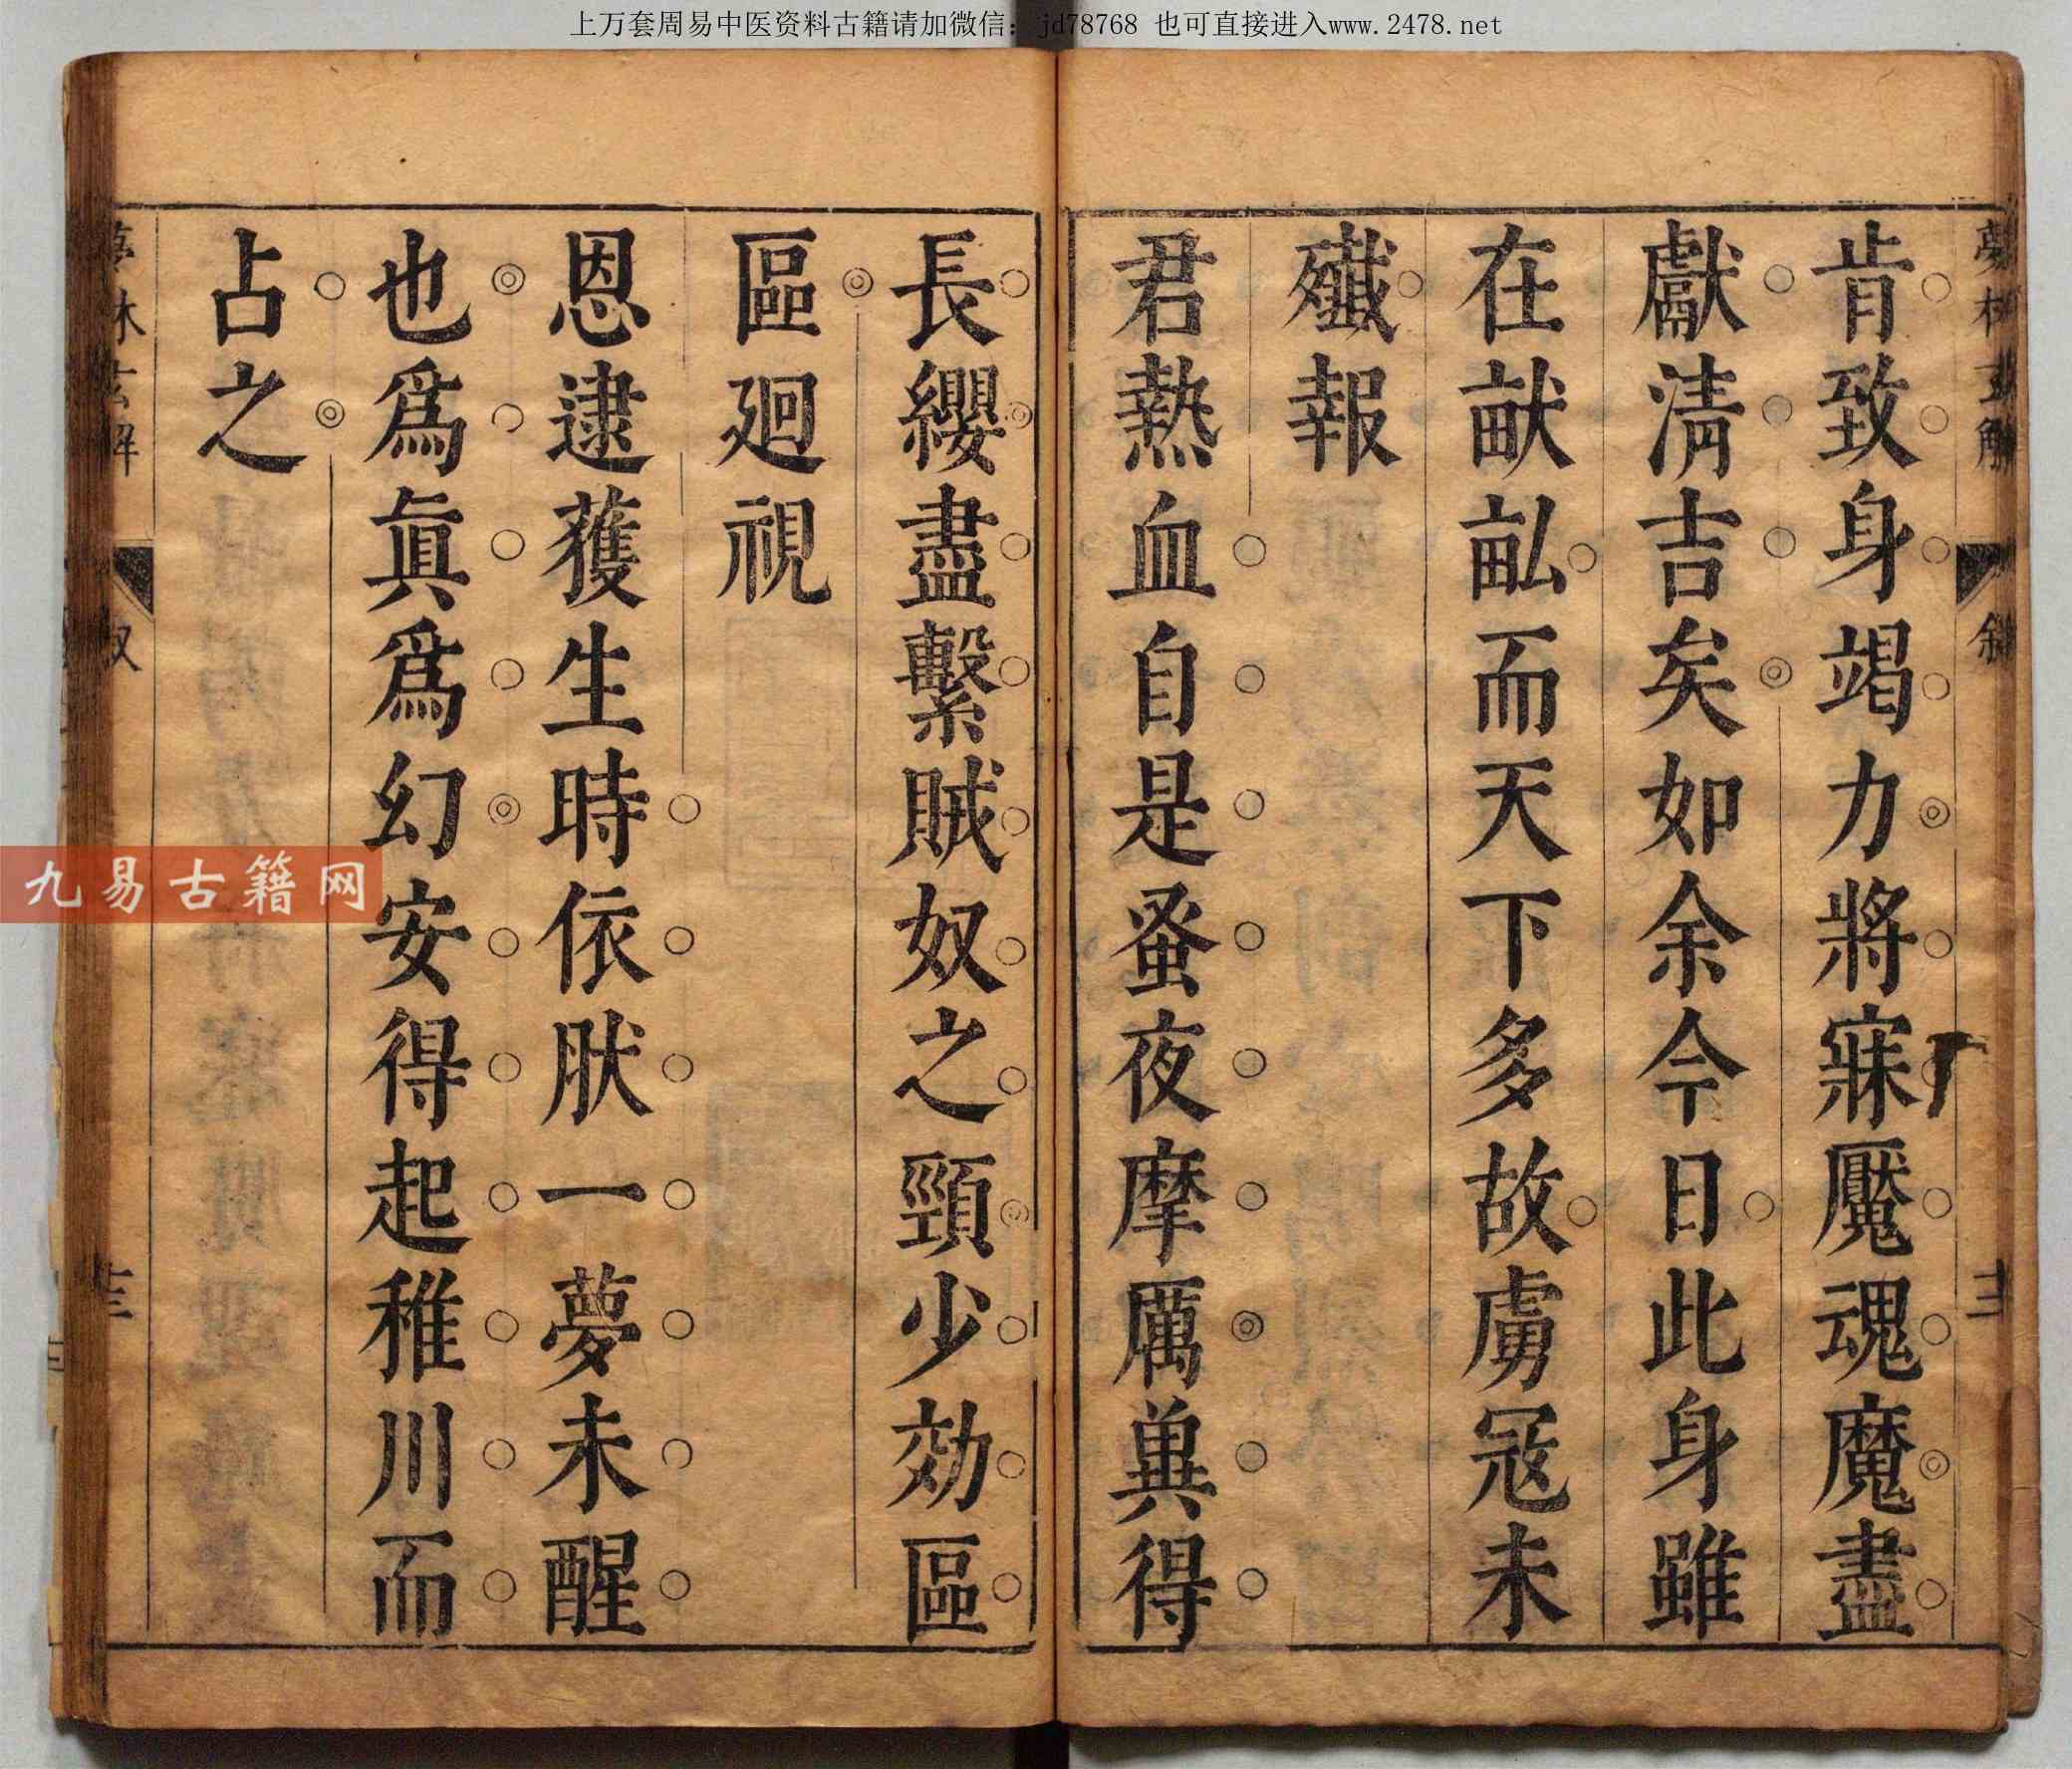 上万套周易中医资料古籍请加微信：jd78768 也可直接进入www.2478.net
夢林玄解
敘
十二
肯致身竭力將寐魘魂魔盡
獻清吉矣如余今日此身雖
在畎畝而天下多故虜寇未
殲報
君熱血自是蚤夜摩厲兾得
長纓盡繫賊奴之頸少効區
區廻視
恩逮獲生時依肰一夢未醒
也爲眞爲幻安得起稚川而
占之
夢林玄解
敘
十三
九易古籍网